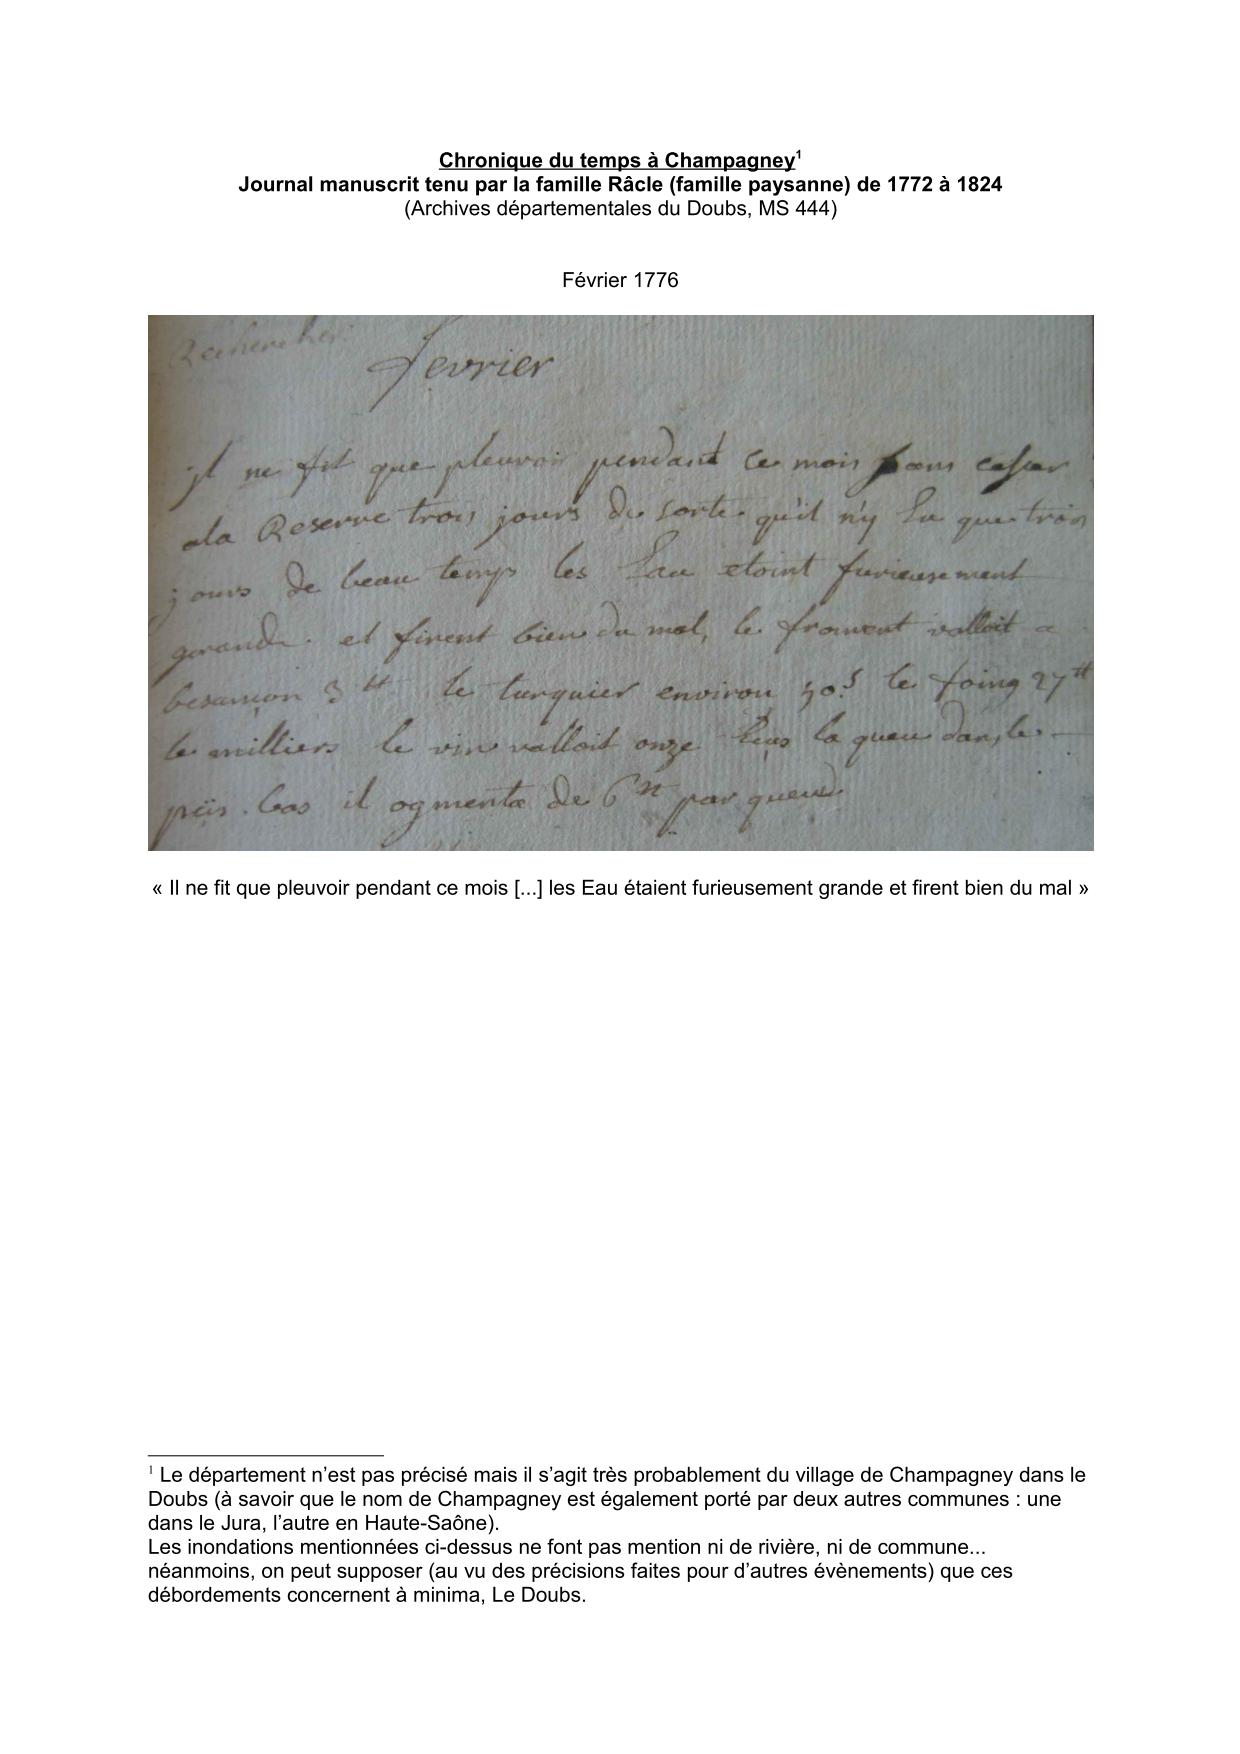 Chronique du temps à Champagney¹
Journal manuscrit tenu par la famille Râcle (famille paysanne) de 1772 à 1824
(Archives départementales du Doubs, MS 444)
Février 1776
fevrier
jl ne fit que pleuvoir pendant ce mois sans cesser
ala Reserve trois jours de sorte qu'il n'y Eu que trois
jours de beau temps les Eau etoint furieusement
grande et firent bien du mal, le froment valloit a
besançon 3 ₶ le turquier environ 50 s le foing 27 ₶
le milliers le vin valloit onze la queu dans le
pais bas il ogmenta de 6 par queue
« Il ne fit que pleuvoir pendant ce mois [...] les Eau étaient furieusement grande et firent bien du mal »
¹ Le département n’est pas précisé mais il s’agit très probablement du village de Champagney dans le
Doubs (à savoir que le nom de Champagney est également porté par deux autres communes : une
dans le Jura, l’autre en Haute-Saône).
Les inondations mentionnées ci-dessus ne font pas mention ni de rivière, ni de commune...
néanmoins, on peut supposer (au vu des précisions faites pour d’autres évènements) que ces
débordements concernent à minima, Le Doubs.